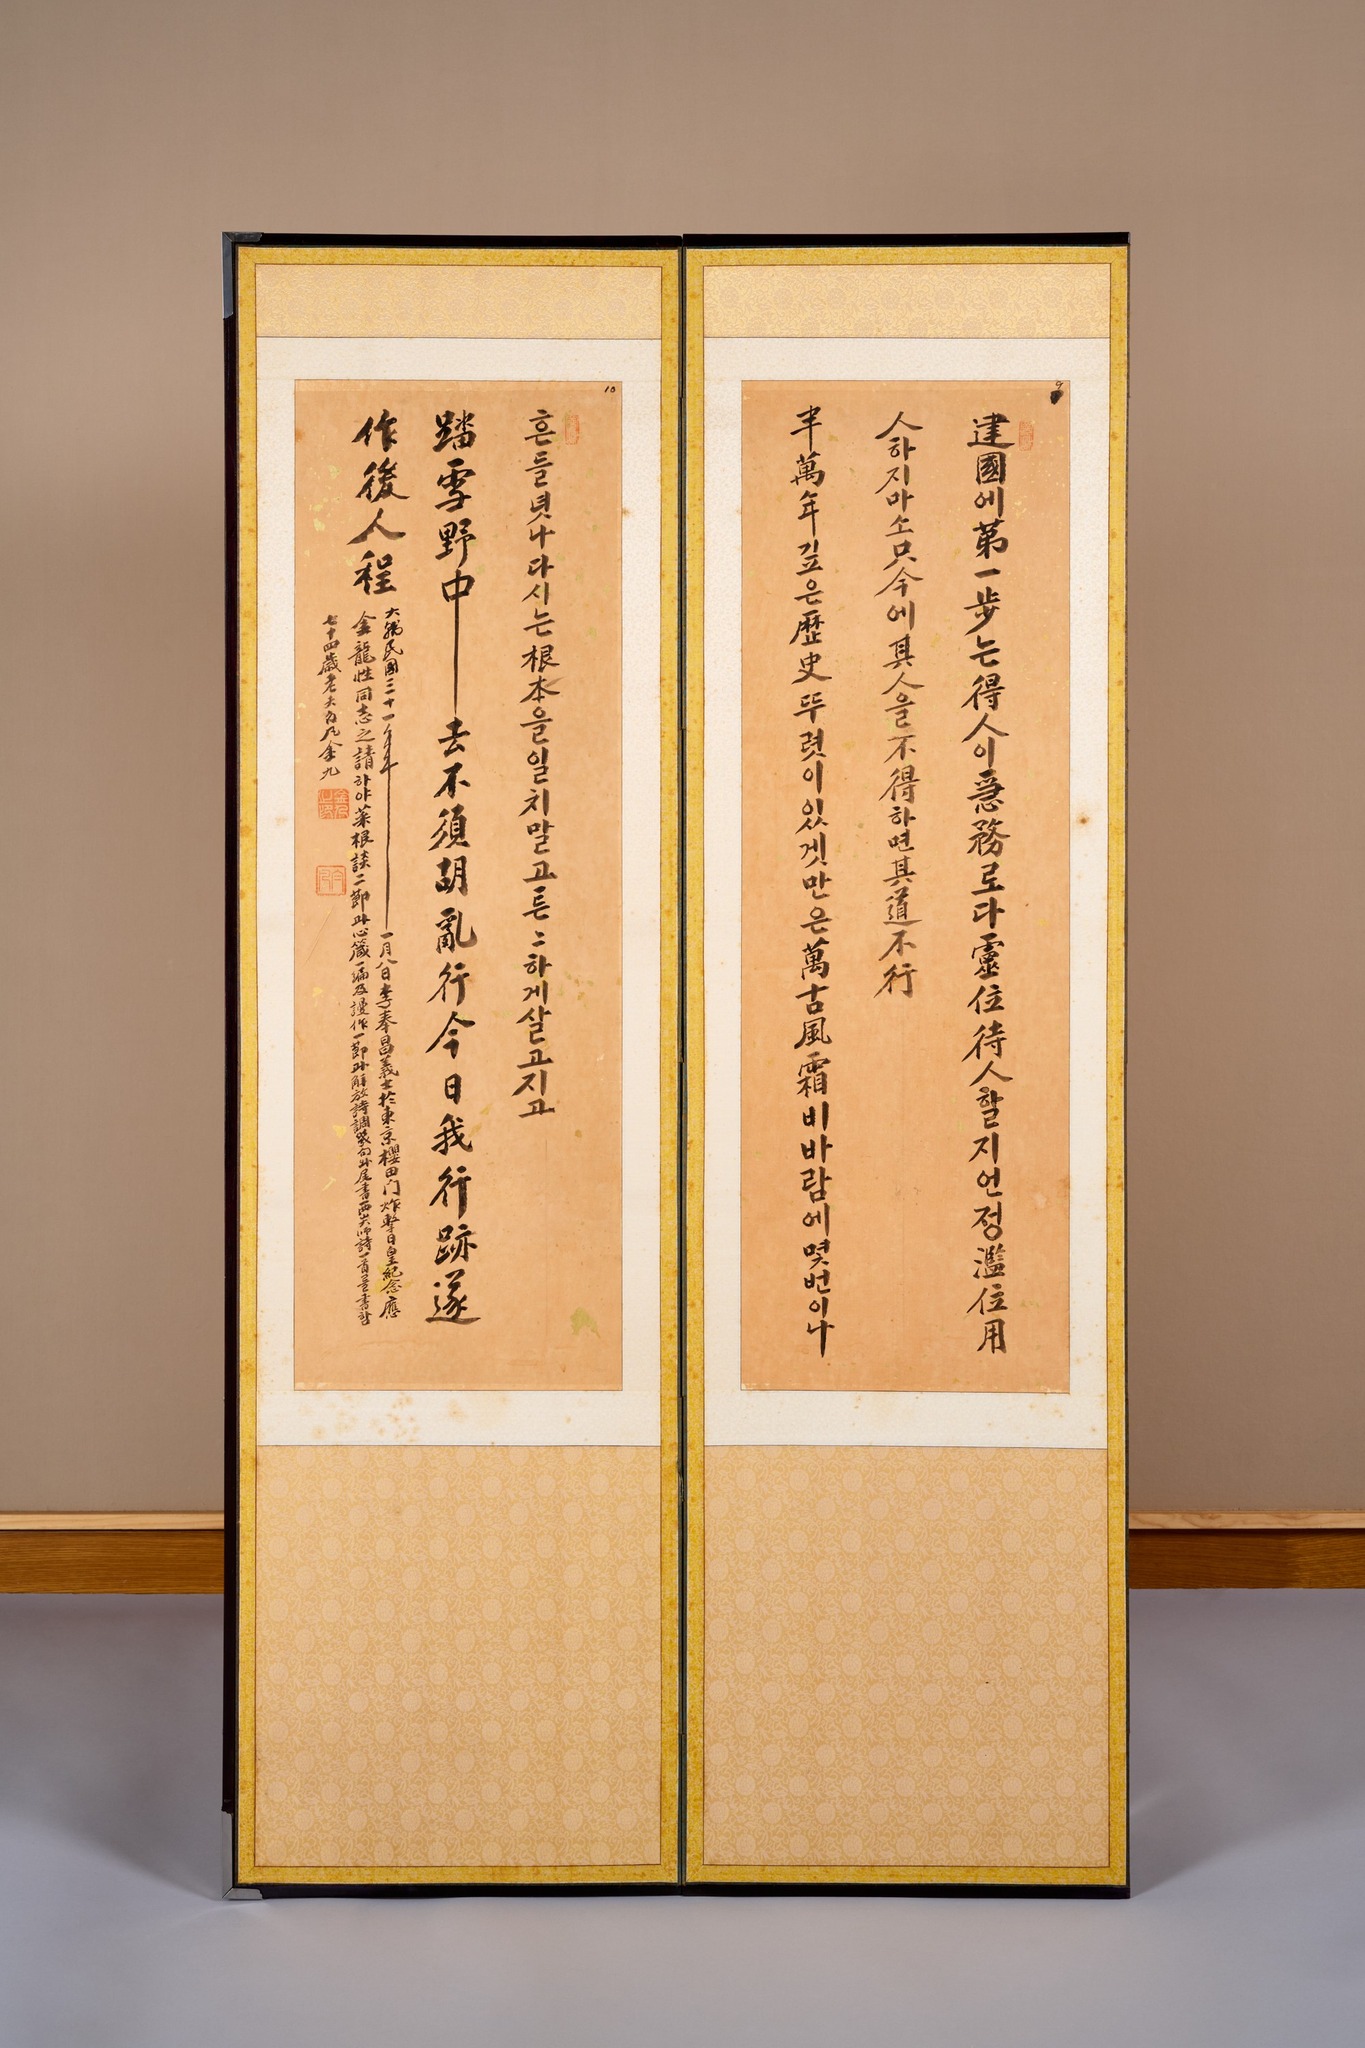 9
建國에第一步는得人이急務로다靈位待人할지언정濫位用
人하지마소只今에其人을不得하면其道不行
半萬年깊은歷史뚜렷이있겟만은萬古風霜비바람에몇번이나
10
흔들녓나다시는根本을일치말고튼々하게살고지고
踏雪野中去不須胡亂行今日我行跡遂
作後人程
大韓民國三十一年一月八日李奉昌義士於東京櫻田门炸擊日皇紀念應
金龍性同志之請하야菜根談二節과心箴一編及謾作一節과解放詩調數句와尾書西山大师詩一首를書함
七十四歲老夫白凡金九